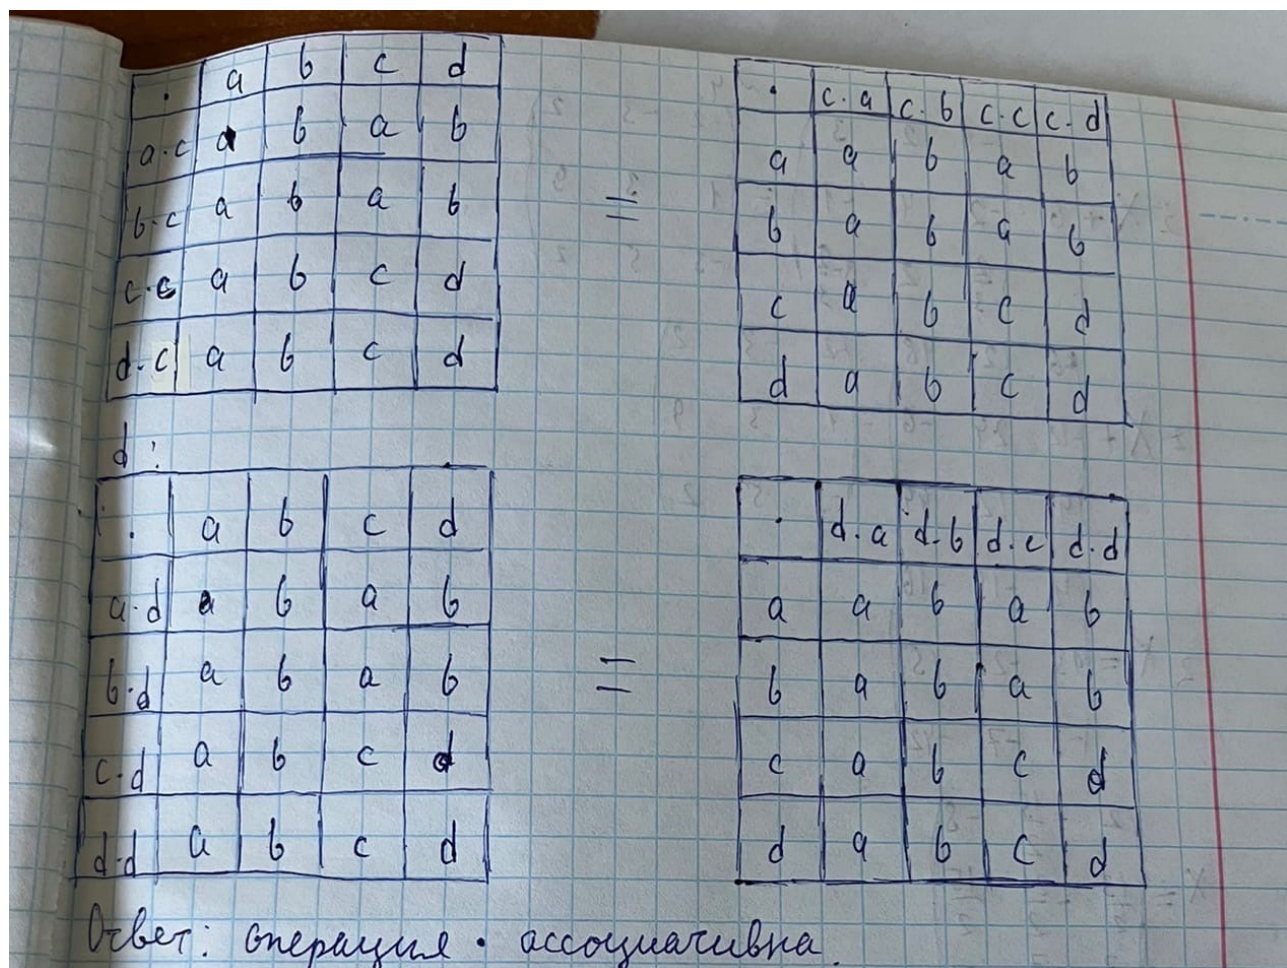 · a b c d
a·c a b a b
b·c a b a b
c·c a b c d
d·c a b c d
=
· c·a c·b c·c c·d
a a b a b
b a b a b
c a b c d
d a b c d
d:
· a b c d
a·d a b a b
b·d a b a b
c·d a b c d
d·d a b c d
=
· d·a d·b d·c d·d
a a b a b
b a b a b
c a b c d
d a b c d
Ответ: операция · ассоциативна.